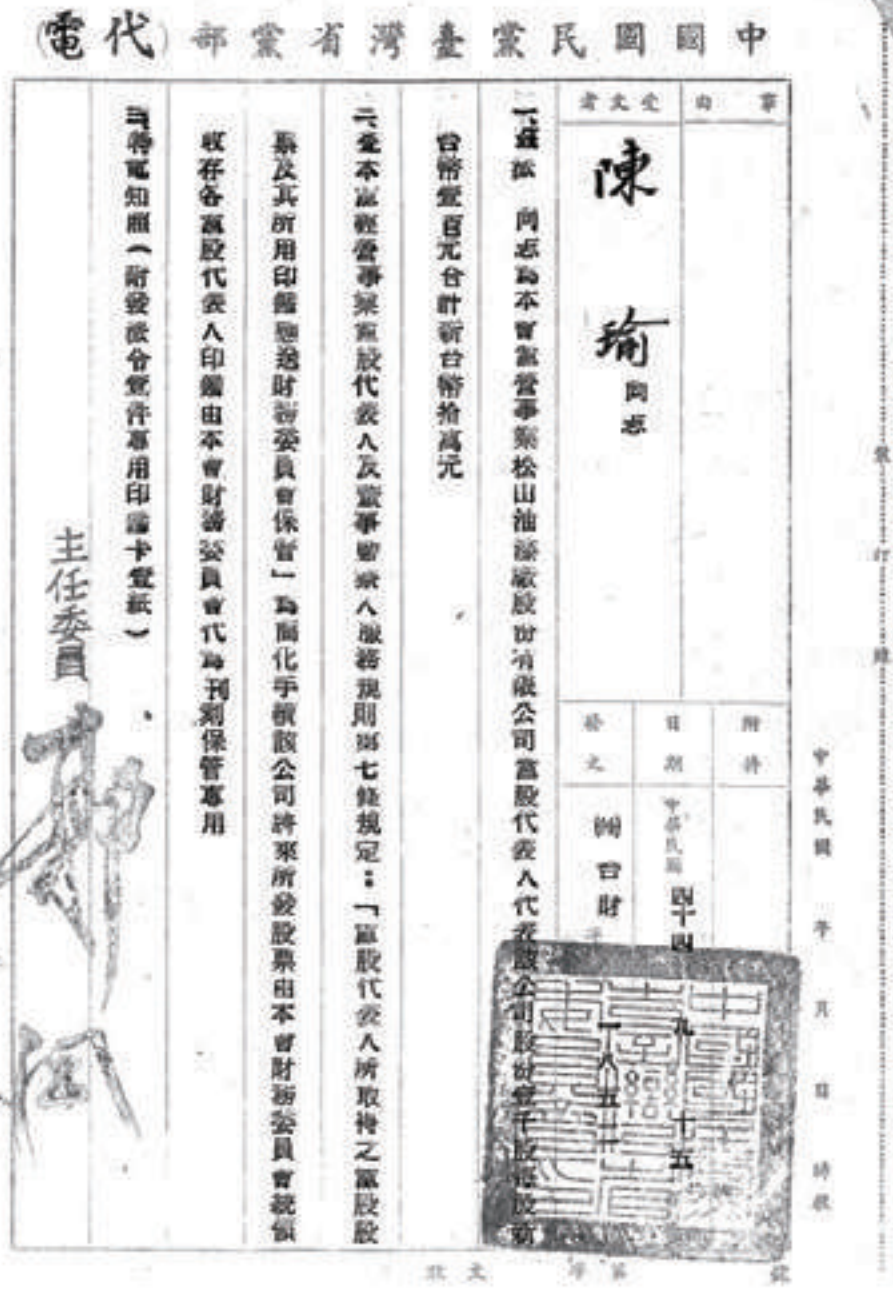 中國國民黨臺灣省黨部(代電)
事由
受文者
陳瑜同志
附件
日期
中華民國四十四 九 十五
發文
台財
一、茲派 同志為本會黨營事業松山油漆廠股份有限公司黨股代表人代表該公司股份壹千股每股新
台幣壹百元合計新台幣拾萬元
二、查本黨經營事業黨股代表人及董事監察人服務規則第七條規定：「黨股代表人所取得之黨股股
票及其所用印鑑應送財務委員會保管」為簡化手續該公司將來所發股票由本會財務委員會統領
收存各黨股代表人印鑑由本會財務委員會代為刊刻保管專用
三、特電知照（附發派令壹件專用印鑑卡壹紙）
主任委員
中華民國 年 月 日 時